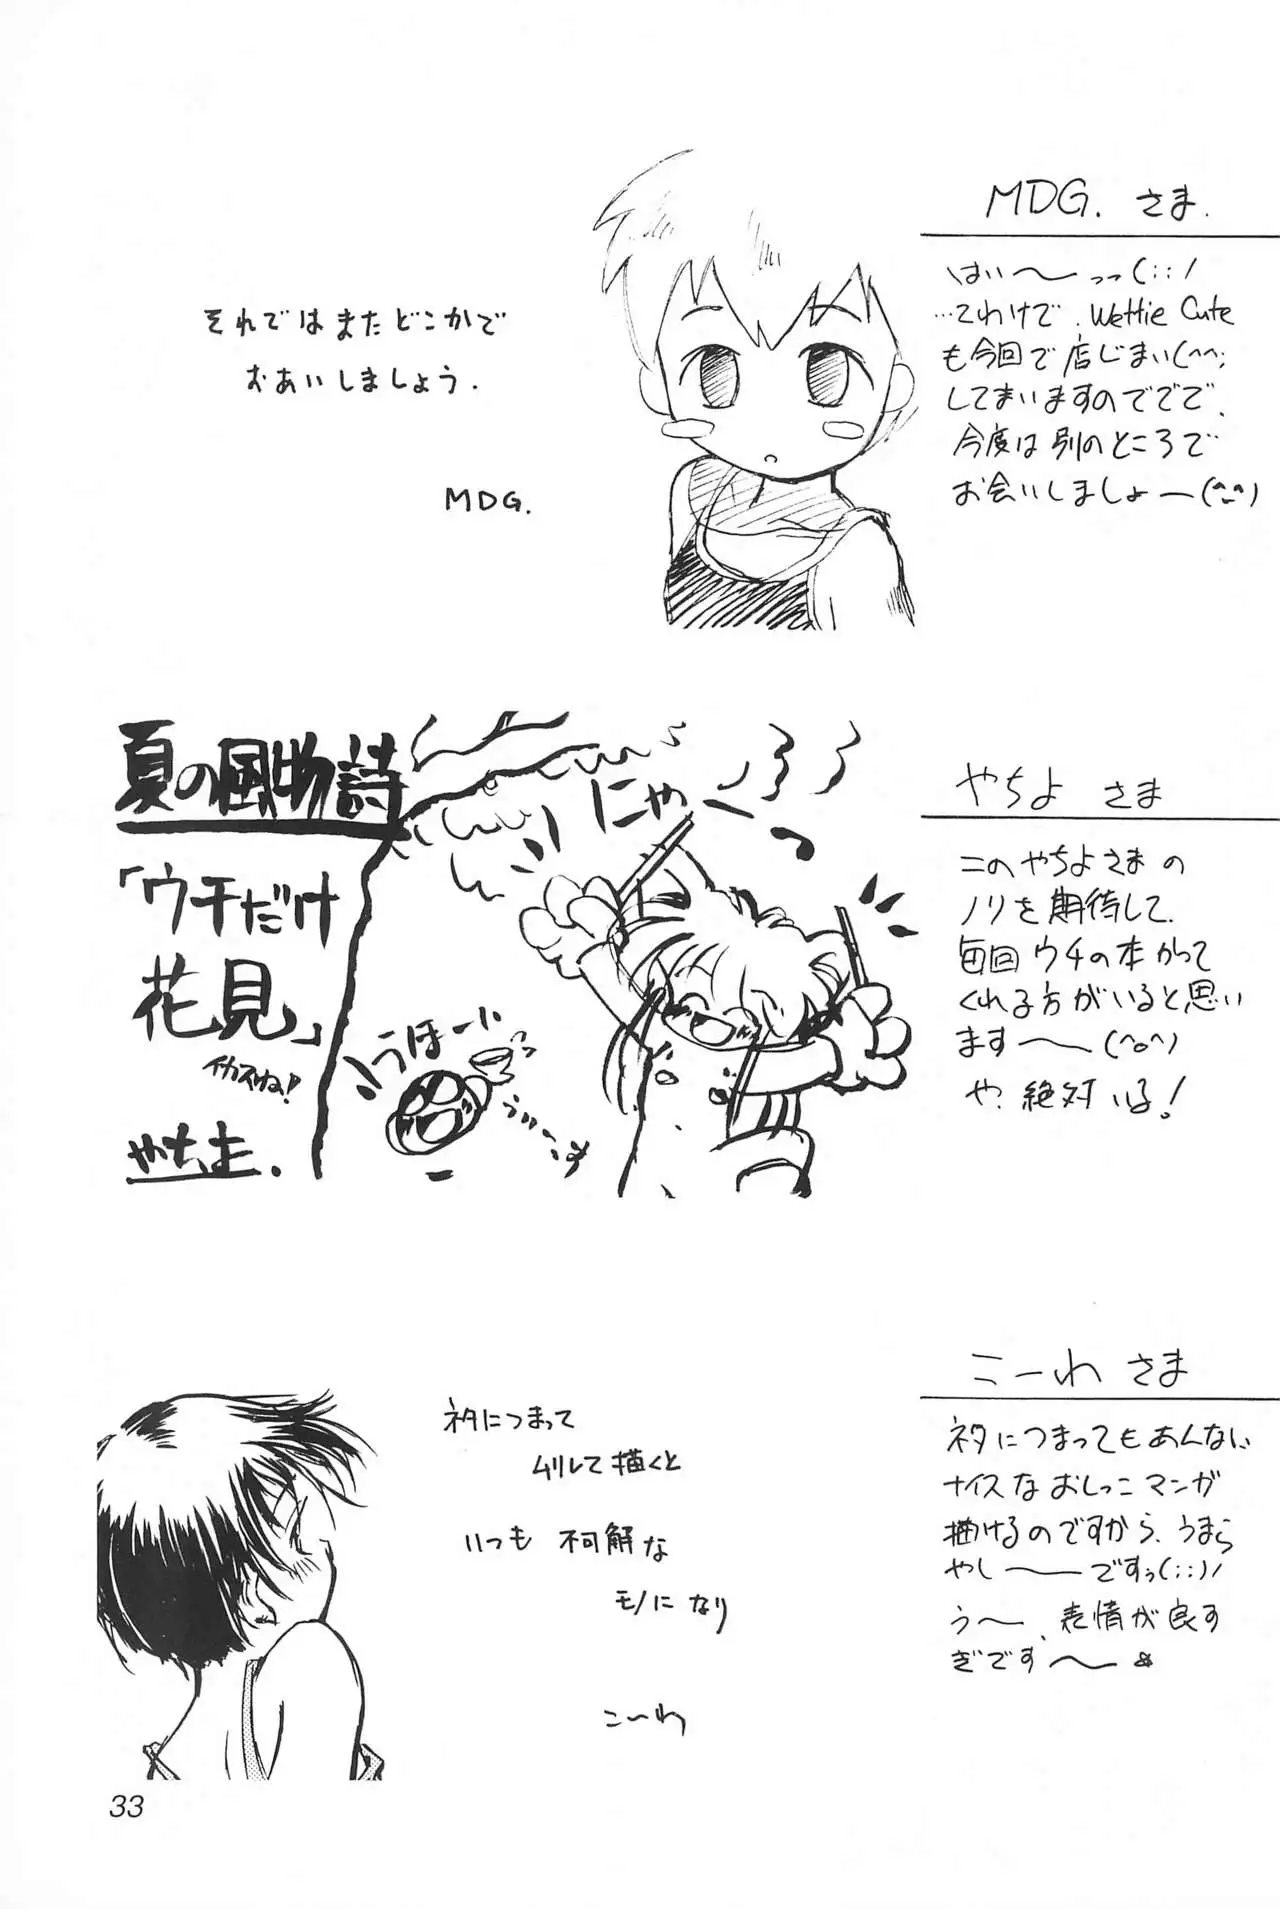 MDG. さま.
はい〜〜っっ(;;)/
…てわけで、Wettie Cute
も今回で店じまい(^^;
してまいますのででで、
今度は別のところで
お会いしましょ〜(^_^)
それではまたどこかで
おあいしましょう.
MDG.
やちよ さま
このやちよさまの
ノリを期待して、
毎回ウチの本かって
くれる方がいると思い
ます〜〜(^o^)
や、絶対いる!
夏の風物詩
「ウチだけ
花見」
イカスね!
やちよ.
にゃ〜
うほー
こーわ さま
ネタにつまってもあんない
ナイスなおしっこマンガ
描けるのですから、うまら
やし〜〜ですぅ(;;)/
う〜、表情が良す
ぎです〜〜
ネタにつまって
ムリして描くと
いつも不可解な
モノになり
こーわ
33